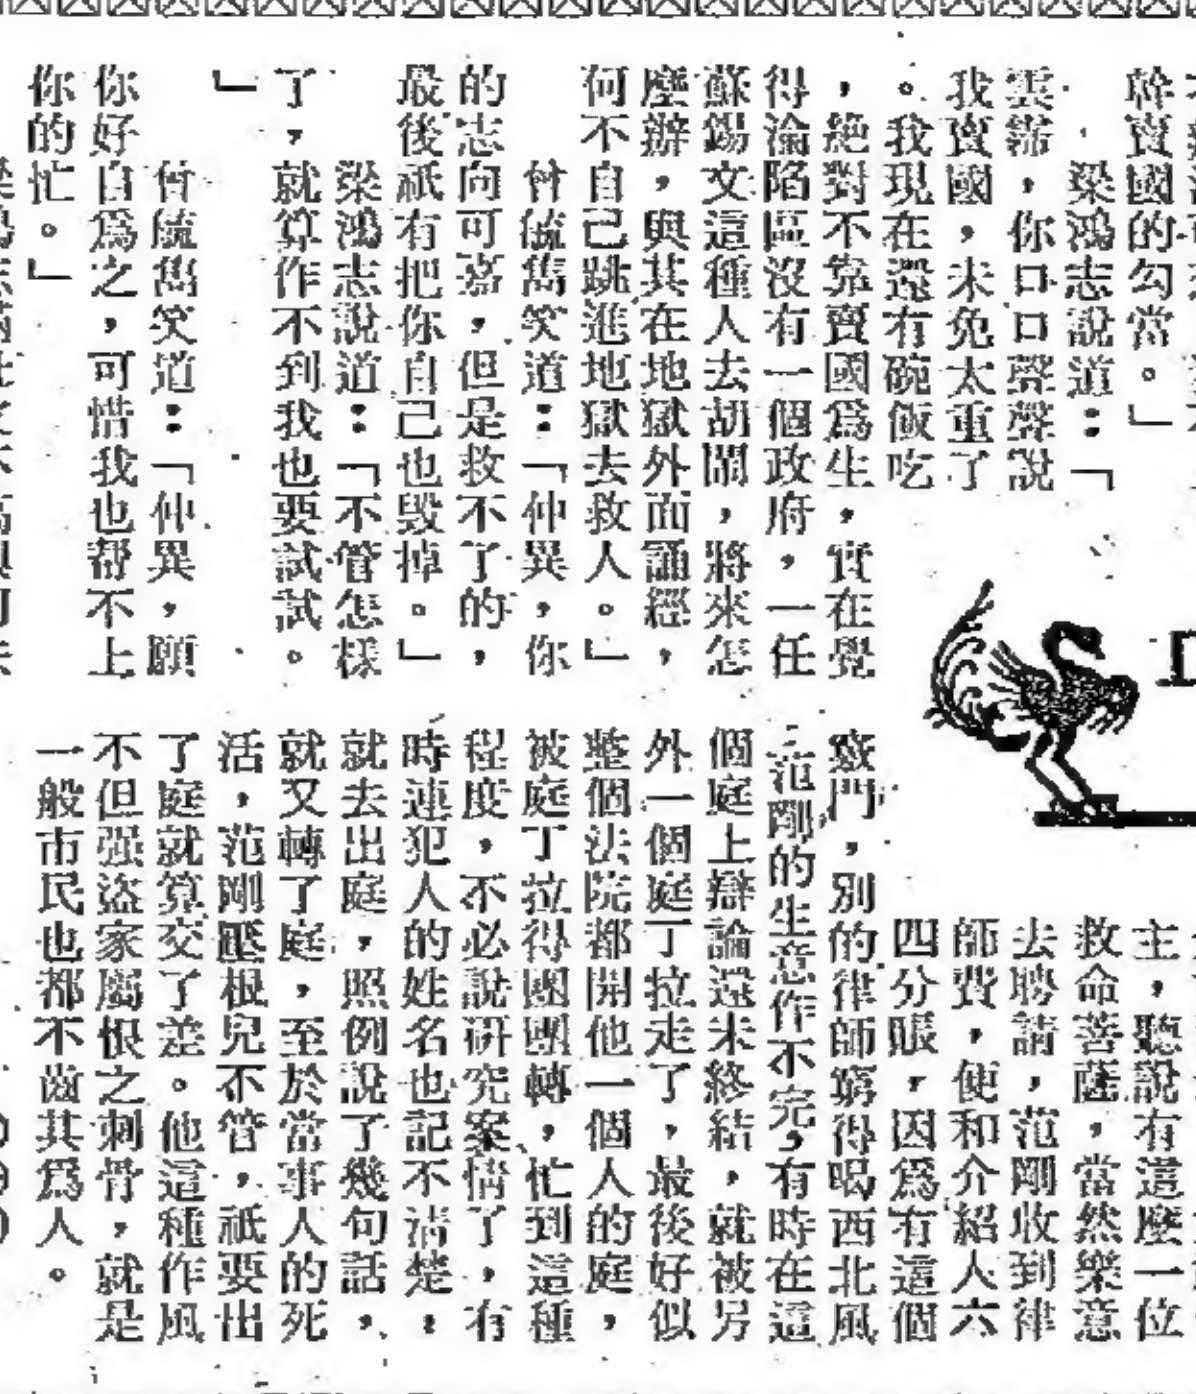 幹賣國的勾當。」
梁鴻志說道：「
雲霈，你口口聲聲說
我賣國，未免太重了
。我現在還有碗飯吃
，絕對不靠賣國爲生，實在覺
得淪陷區沒有一個政府，一任
蘇錫文這種人去胡鬧，將來怎
麼辦，與其在地獄外面誦經，
何不自己跳進地獄去救人。」
曾毓雋笑道：「仲異，你
的志向可嘉，但是救不了的，
最後祇有把你自己也毀掉。」
梁鴻志說道：「不管怎樣
了，就算作不到我也要試試。
」
曾毓雋笑道：「仲異，願
你好自爲之，可惜我也帮不上
你的忙。」
主，聽說有這麼一位
救命菩薩，當然樂意
去聘請，范剛收到律
師費，便和介紹人六
四分賬，因爲有這個
竅門，別的律師窮得喝西北風
，范剛的生意作不完，有時在這
個庭上辯論還未終結，就被另
外一個庭丁拉走了，最後好似
整個法院都開他一個人的庭，
被庭丁拉得團團轉，忙到這種
程度，不必說研究案情了，有
時連犯人的姓名也記不清楚，
就去出庭，照例說了幾句話，
就又轉了庭，至於當事人的死
活，范剛壓根兒不管，祇要出
了庭就算交了差。他這種作風
不但强盜家屬恨之刺骨，就是
一般市民也都不齒其爲人。